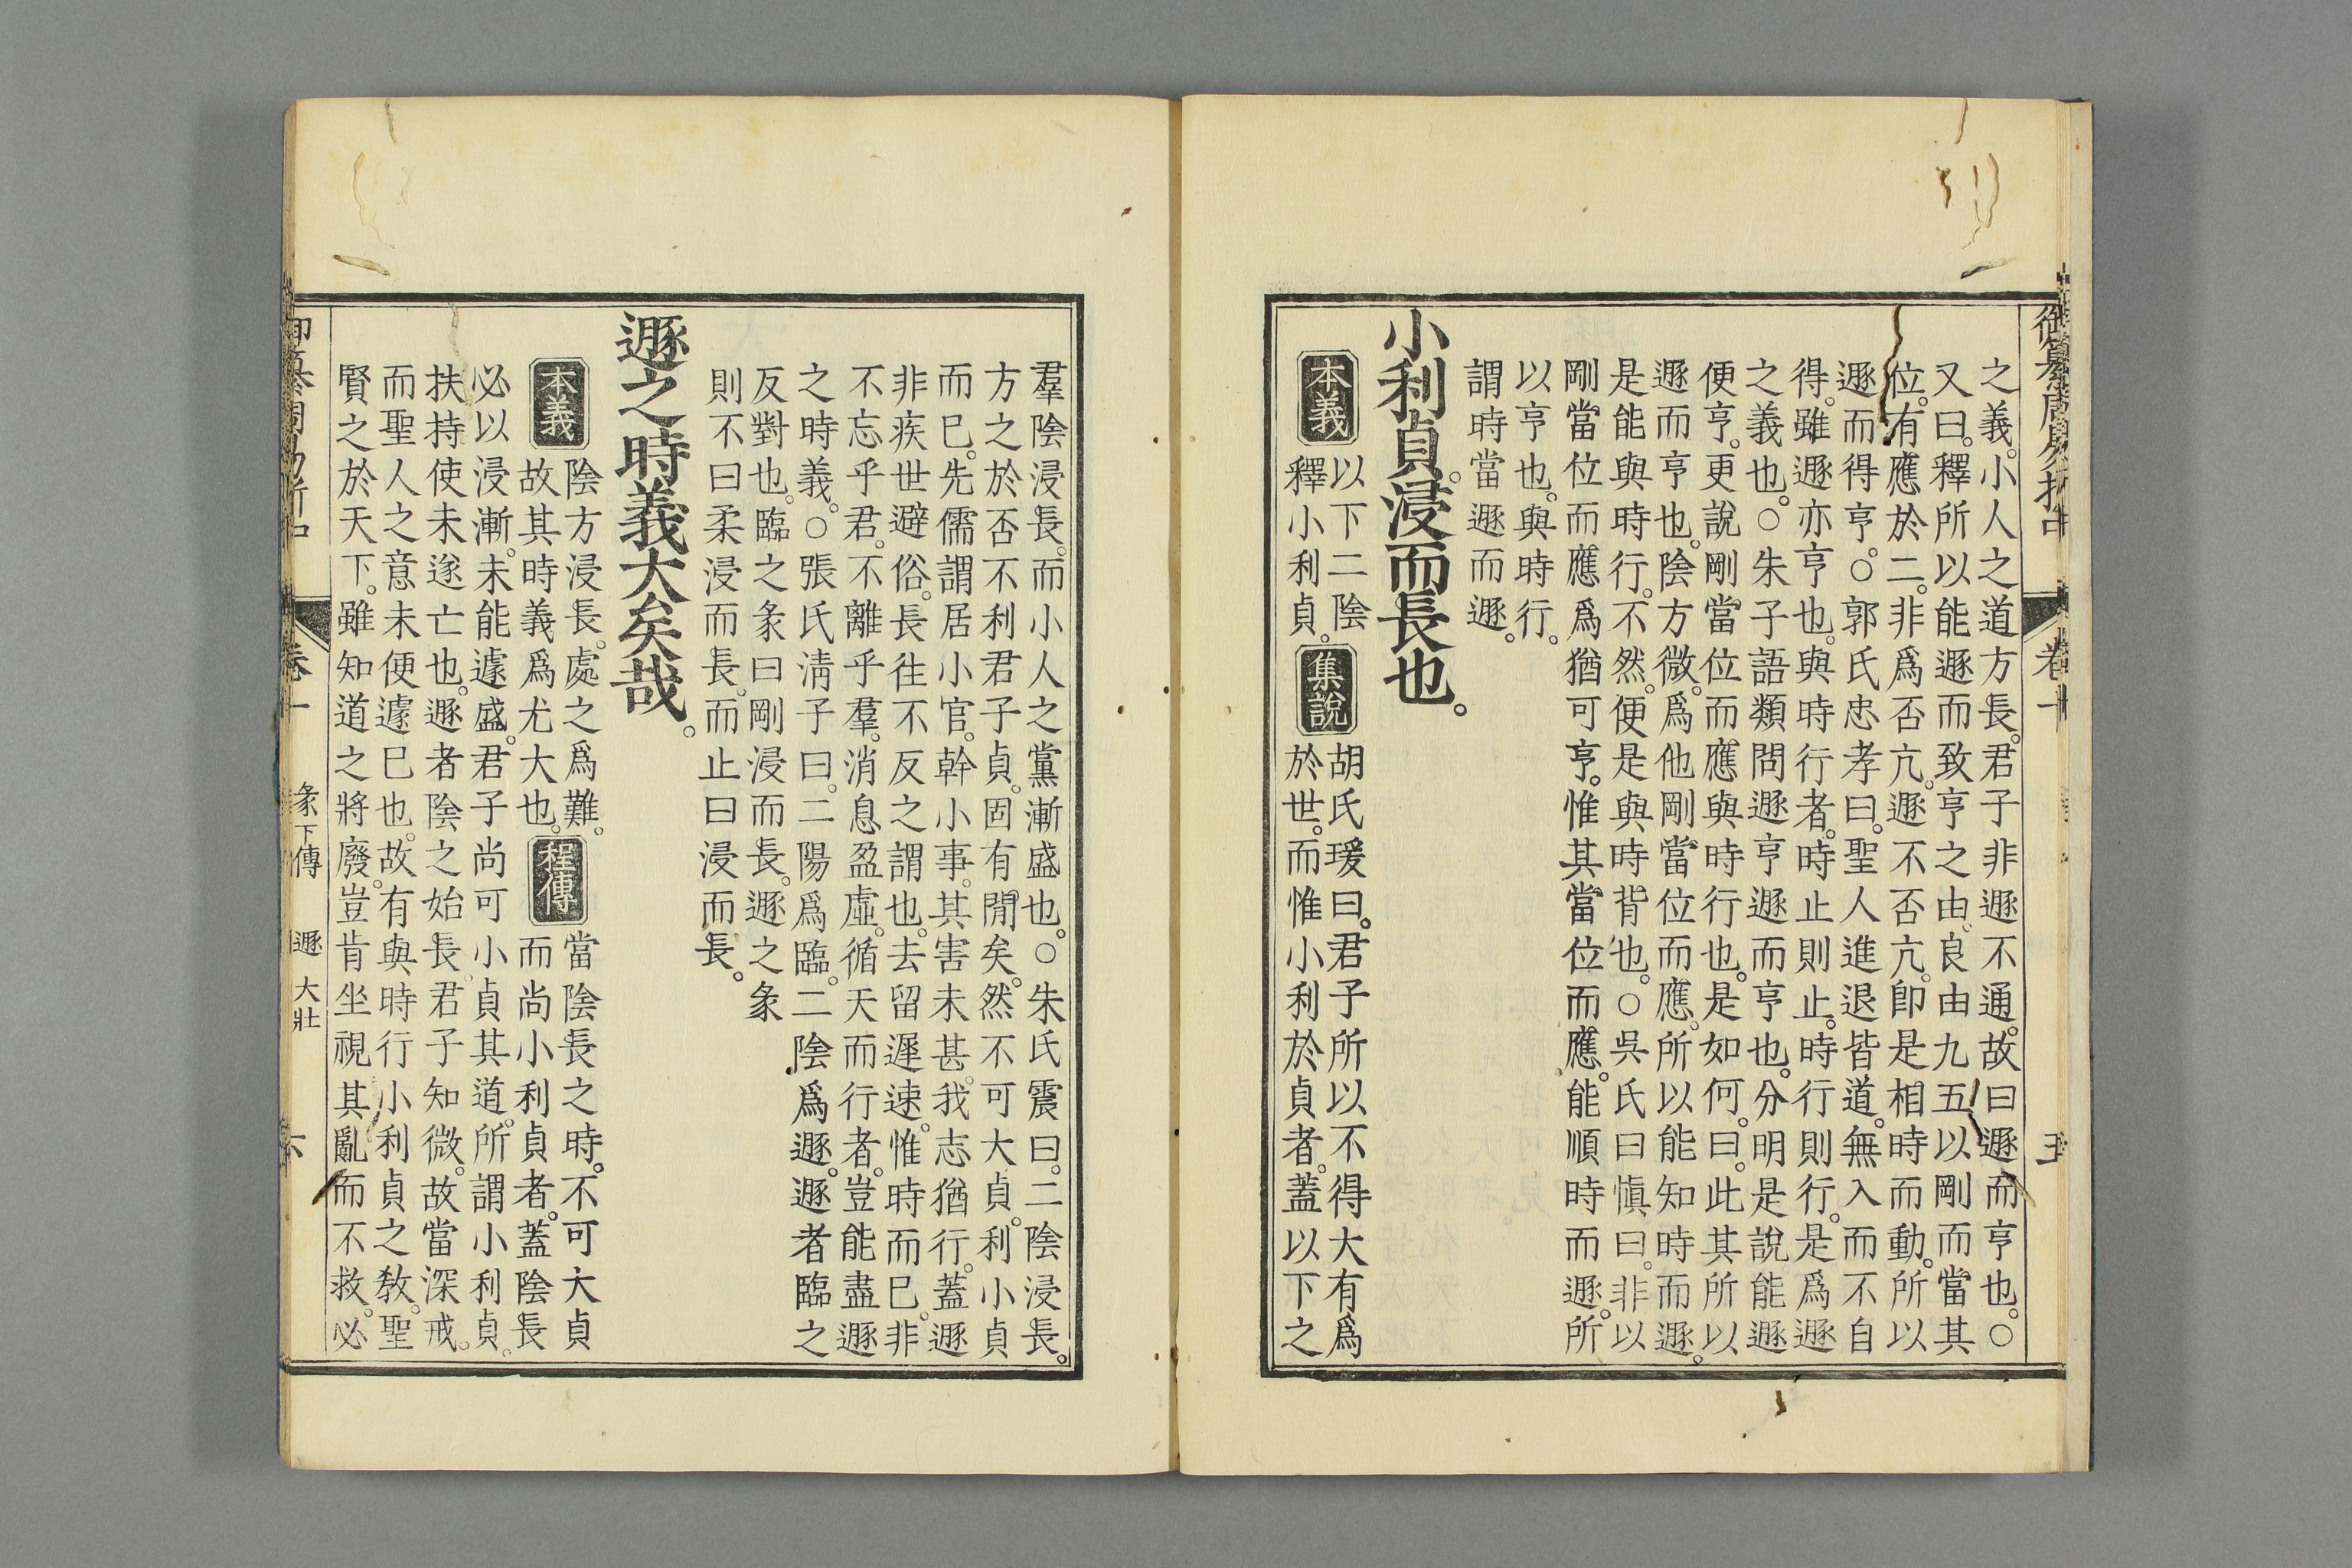 之義。小人之道方長。君子非遯不通。故曰遯而亨也。○
又曰。釋所以能遯而致亨之由。良由九五以剛而當其
位。有應於二。非爲否亢。遯不否亢。卽是相時而動。所以
遯而得亨。○郭氏忠孝曰。聖人進退皆道。無入而不自
得。雖遯亦亨也。與時行者。時止則止。時行則行。是爲遯
之義也。○朱子語類問遯亨遯而亨也。分明是說能遯
便亨。更說剛當位而應與時行也。是如何。曰。此其所以
遯而亨也。陰方微。爲他剛當位而應。所以能知時而遯。
是能與時行。不然。便是與時背也。○吳氏曰愼曰。非以
剛當位而應爲猶可亨。惟其當位而應。能順時而遯。所
以亨也。與時行。
謂時當遯而遯。
小利貞。浸而長也。
本義
以下二陰
釋小利貞。
集說
胡氏瑗曰。君子所以不得大有爲
於世。而惟小利於貞者。蓋以下之
羣陰浸長。而小人之黨漸盛也。○朱氏震曰。二陰浸長。
方之於否不利君子貞。固有閒矣。然不可大貞。利小貞
而已。先儒謂居小官。幹小事。其害未甚。我志猶行。蓋遯
非疾世避俗。長往不反之謂也。去留遲速。惟時而已。非
不忘乎君。不離乎羣。消息盈虛。循天而行者。豈能盡遯
之時義。○張氏淸子曰。二陽爲臨。二陰爲遯。遯者臨之
反對也。臨之彖曰剛浸而長。遯之彖
則不曰柔浸而長。而止曰浸而長。
遯之時義大矣哉。
本義
陰方浸長。處之爲難。
故其時義爲尤大也。
程傳
當陰長之時。不可大貞
而尚小利貞者。蓋陰長
必以浸漸。未能遽盛。君子尚可小貞其道。所謂小利貞。
扶持使未遂亡也。遯者陰之始長。君子知微。故當深戒。
而聖人之意未便遽已也。故有與時行小利貞之敎。聖
賢之於天下。雖知道之將廢。豈肯坐視其亂而不救。必
彖下傳 遯 大壯
六